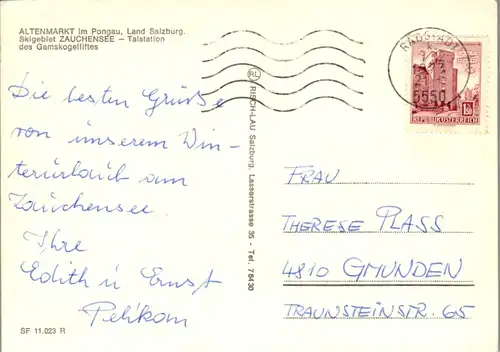 ALTENMARKT im Pongau, Land Salzburg.
Skigebiet ZAUCHENSEE – Talstation
des Gamskogelliftes
Die besten Grüße
von unserem Win-
terurlaub am
Zauchensee.
Ihre
Edith u Ernst
Pelikan
SF 11.023 R
RL
RISCH-LAU Salzburg, Lasserstrasse 35 - Tel. 76 4 30
RADSTADT
5550
REPUBLIK ÖSTERREICH
1.50
FRAU
THERESE PLASS
4810 GMUNDEN
TRAUNSTEINSTR. 65